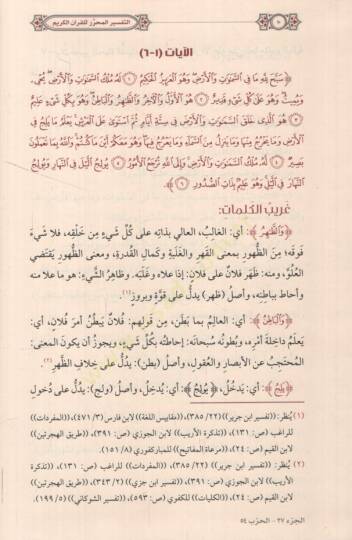 التفسير المحرّر للقرآن الكريم
الآيات (١-٦)
﴿سَبَّحَ لِلَّهِ مَا فِي السَّمَوَتِ وَالْأَرْضِ وَهُوَ الْعَزِيزُ الْحَكِيمُ ۝١ لَهُ مُلْكُ السَّمَوَتِ وَالْأَرْضِ يُحْيِ،
وَيُمِيتُ وَهُوَ عَلَى كُلِّ شَيْءٍ قَدِيرٌ ۝٢ هُوَ الْأَوَّلُ وَالْآخِرُ وَالظَّهِرُ وَالْبَاطِنُ وَهُوَ بِكُلِّ شَيْءٍ عَلِيمٌ
۝٣ هُوَ الَّذِي خَلَقَ السَّمَوَتِ وَالْأَرْضَ فِي سِتَّةِ أَيَّامٍ ثُمَّ اسْتَوَى عَلَى الْعَرْشِ يَعْلَمُ مَا يَلِجُ فِي
الْأَرْضِ وَمَا يَخْرُجُ مِنْهَا وَمَا يَنزِلُ مِنَ السَّمَاءِ وَمَا يَعْرُجُ فِيهَا وَهُوَ مَعَكُمْ أَيْنَ مَا كُنتُمْ وَاللَّهُ بِمَا تَعْمَلُونَ
بَصِيرٌ ۝٤ لَهُ مُلْكُ السَّمَوَتِ وَالْأَرْضِ وَإِلَى اللَّهِ تُرْجَعُ الْأُمُورُ ۝٥ يُولِجُ الَّيْلَ فِي النَّهَارِ وَيُولِجُ
النَّهَارَ فِي الَّيْلِ وَهُوَ عَلِيمٌ بِذَاتِ الصُّدُورِ ۝٦﴾
غَريبُ الكَلِماتِ:
﴿وَالظَّهِرُ﴾: أي: الغالِبُ، العالي بذاتِه على كُلِّ شَيءٍ مِن خَلْقِه، فلا شَيءَ
فوقَه؛ مِنَ الظُّهورِ بمعنى القَهرِ والغَلَبةِ وكَمالِ القُدرةِ، ومعنى الظُّهورِ يَقتَضي
العُلُوَّ، ومنه: ظَهَر فُلانٌ على فُلانٍ: إذا علاه وغَلَبَه. وظاهِرُ الشَّيءِ: هو ما علا منه
وأحاط بباطِنِه، وأصلُ (ظهر) يدُلُّ على قوَّةٍ وبروزٍ(١).
﴿وَالْبَاطِنُ﴾: أي: العالِمُ بما بَطَن، مِن قَولِهم: فُلانٌ يَبطُنُ أمرَ فُلانٍ، أي:
يَعلَمُ داخِلةَ أمْرِه، وبُطونُه سُبحانَه: إحاطتُه بكُلِّ شَيءٍ، ويجوزُ أن يكونَ المعنى:
المُحتَجِبُ عن الأبصارِ والعُقولِ، وأصلُ (بطن): يدُلُّ على خِلافِ الظَّهرِ(٢).
﴿يَلِجُ﴾: أي: يَدخُلُ، ﴿يُولِجُ﴾: أي: يُدخِلُ، وأصلُ (ولج): يدُلُّ على دُخولِ
(١) يُنظر: ((تفسير ابن جرير)) (٣٨٥/٢٢)، ((مقاييس اللغة)) لابن فارس (٤٧١/٣)، ((المفردات))
للراغب (ص: ١٣١)، ((تذكرة الأريب)) لابن الجوزي (ص: ٣٩١)، ((طريق الهجرتين))
لابن القيم (ص: ٢٤)، ((مرعاة المفاتيح)) للمباركفوري (١٥١/٨).
(٢) يُنظر: ((تفسير ابن جرير)) (٣٨٥/٢٢)، ((المفردات)) للراغب (ص: ١٣١)، ((تذكرة
الأريب)) لابن الجوزي (ص: ٣٩١)، ((تفسير ابن جزي)) (٣٤٣/٢)، ((طريق الهجرتين))
لابن القيم (ص: ٢٤)، ((الكليات)) للكفوي (ص: ٥٩٣)، ((تفسير الشوكاني)) (١٩٩/٥).
الجزء ٢٧ - الحزب ٥٤